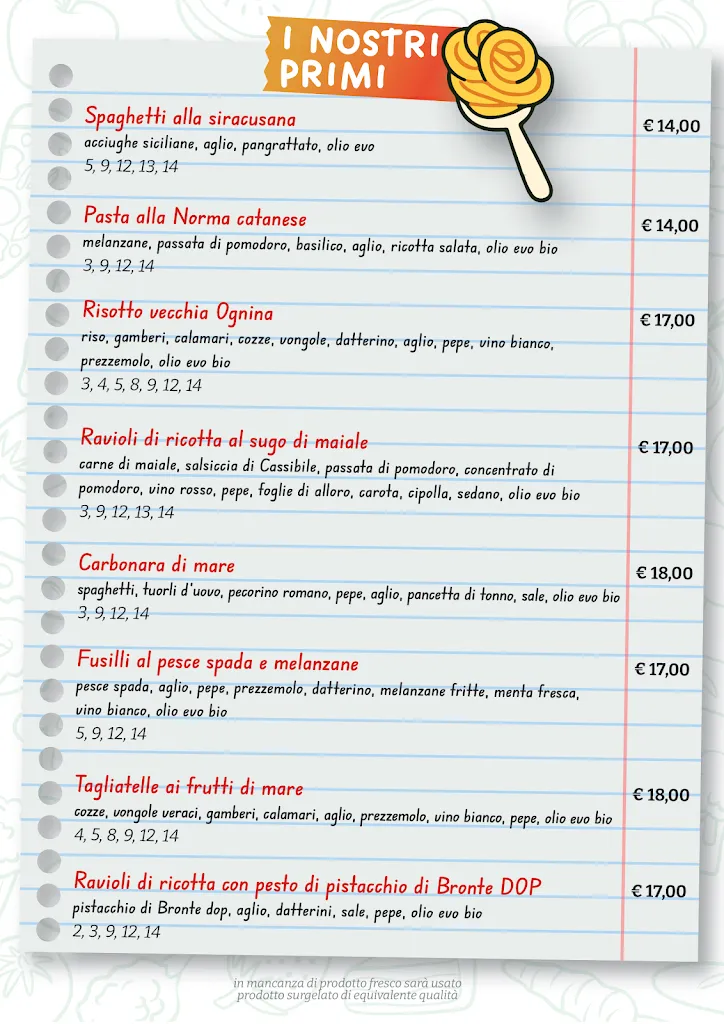 I NOSTRI
PRIMI
Spaghetti alla siracusana
€ 14,00
acciughe siciliane, aglio, pangrattato, olio evo
5, 9, 12, 13, 14
Pasta alla Norma catanese
€ 14,00
melanzane, passata di pomodoro, basilico, aglio, ricotta salata, olio evo bio
3, 9, 12, 14
Risotto vecchia Ognina
€ 17,00
riso, gamberi, calamari, cozze, vongole, datterino, aglio, pepe, vino bianco,
prezzemolo, olio evo bio
3, 4, 5, 8, 9, 12, 14
Ravioli di ricotta al sugo di maiale
€ 17,00
carne di maiale, salsiccia di Cassibile, passata di pomodoro, concentrato di
pomodoro, vino rosso, pepe, foglie di alloro, carota, cipolla, sedano, olio evo bio
3, 9, 12, 13, 14
Carbonara di mare
€ 18,00
spaghetti, tuorli d'uovo, pecorino romano, pepe, aglio, pancetta di tonno, sale, olio evo bio
3, 9, 12, 14
Fusilli al pesce spada e melanzane
€ 17,00
pesce spada, aglio, pepe, prezzemolo, datterino, melanzane fritte, menta fresca,
vino bianco, olio evo bio
5, 9, 12, 14
Tagliatelle ai frutti di mare
€ 18,00
cozze, vongole veraci, gamberi, calamari, aglio, prezzemolo, vino bianco, pepe, olio evo bio
4, 5, 8, 9, 12, 14
Ravioli di ricotta con pesto di pistacchio di Bronte DOP
€ 17,00
pistacchio di Bronte dop, aglio, datterini, sale, pepe, olio evo bio
2, 3, 9, 12, 14
in mancanza di prodotto fresco sarà usato
prodotto surgelato di equivalente qualità